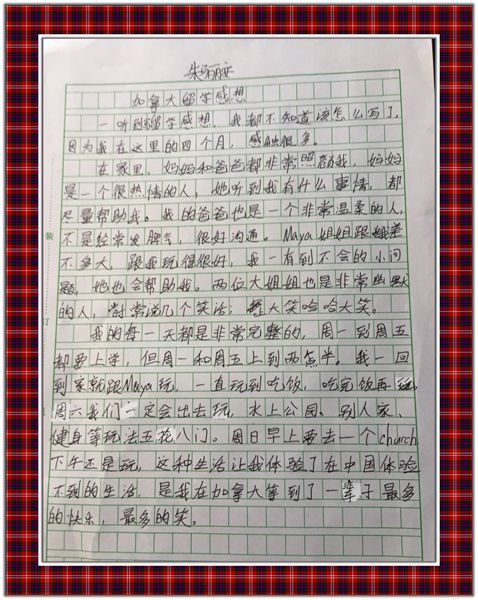 朱丽
加拿大留学感想
一听到留学感想,我都不知道该怎么写了,
因为我在这里的四个月,感触很多。
在家里,妈妈和爸爸都非常照顾我,妈妈
是一个很热情的人,她听到我有什么事情,都
尽量帮助我。我的爸爸也是一个非常温柔的人,
不是经常发脾气,很好沟通。Maya姐姐跟我差
不多大,跟我玩得很好,我一有到不会的小问
题,她也会帮助我。两位大姐姐也是非常幽默
的人,时常说几个笑话,大笑哈哈大笑。
我的每一天都是非常完整的,周一到周五
都要上学,但周一和周五上到两点半。我一回
到家就跟Maya玩,一直玩到吃饭,吃完饭再玩,
周六我们一定会出去玩,水上公园、别人家、
健身等玩法五花八门。周日早上要去一个church
下午还是玩,这种生活让我体验了在中国体验
不到的生活,是我在加拿大等到了一辈子最多
的快乐,最多的笑。
装
订